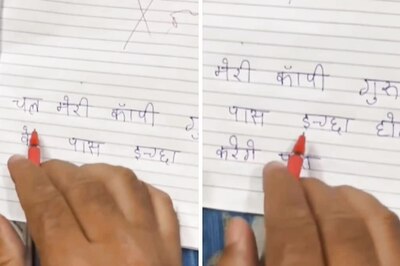 चल मेरी कॉपी गु
के पास इच्छा
मेरी कॉपी गुरु
पास इच्छा हो
करेगे